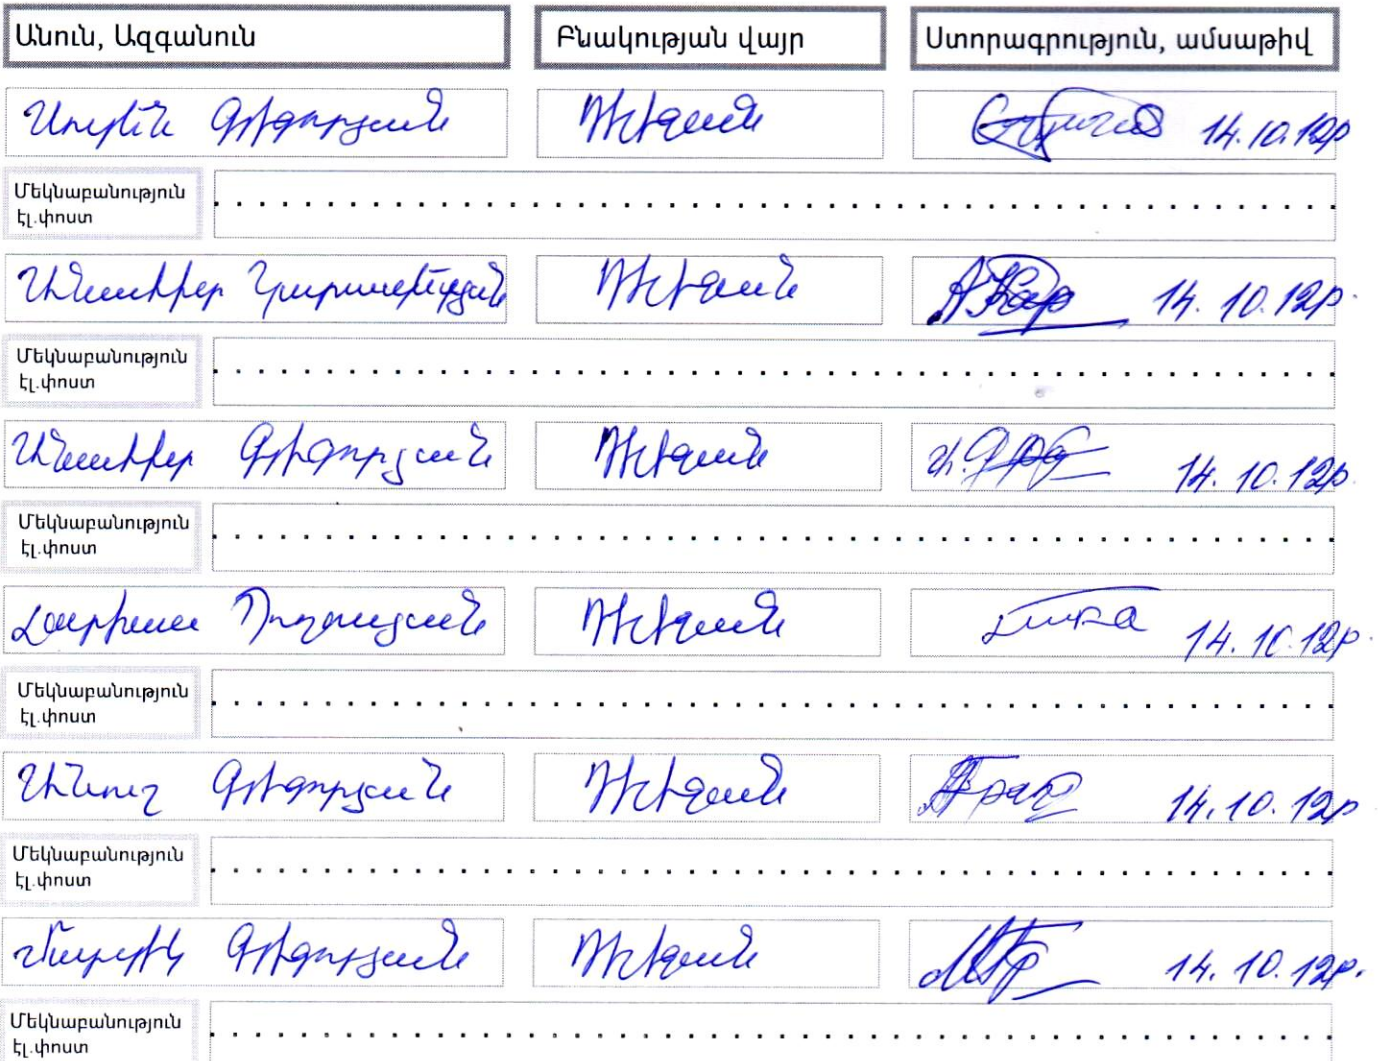 Անուն, Ազգանուն Բնակության վայր Ստորագրություն, ամսաթիվ
Սուրեն Գրիգորյան Դիլիջան 14.10.12թ
Մեկնաբանություն
էլ.փոստ
Կարապետյան Դիլիջան 14.10.12թ.
Մեկնաբանություն
էլ.փոստ
Գրիգորյան Դիլիջան 14.10.12թ.
Մեկնաբանություն
էլ.փոստ
Լարիսա Պողոսյան Դիլիջան 14.10.12թ.
Մեկնաբանություն
էլ.փոստ
Անուշ Գրիգորյան Դիլիջան 14.10.12թ
Մեկնաբանություն
էլ.փոստ
Գրիգորյան Դիլիջան 14.10.12թ.
Մեկնաբանություն
էլ.փոստ